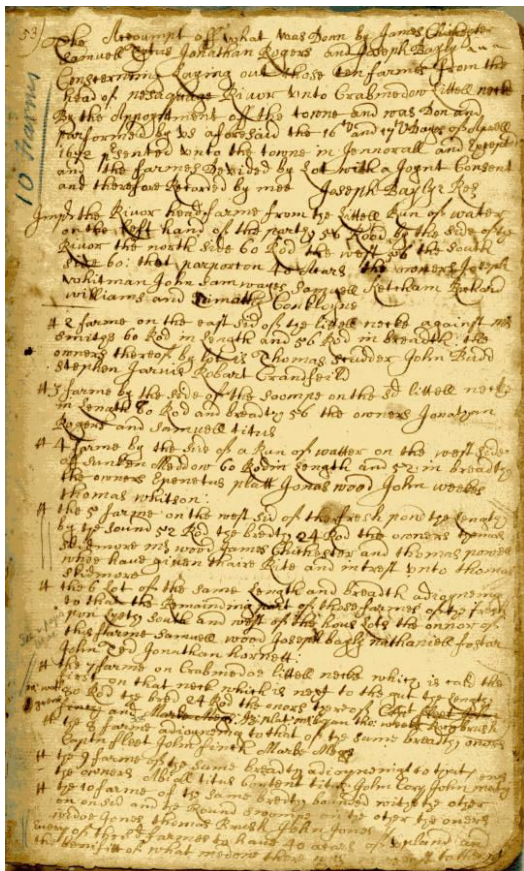 53)
The Accoumpt off what was Donn by James Chichester
Samuell Titus Jonathan Rogers and Joseph Bayly
Consterning Laying out those ten farmes from the
head of nesaquage Rivor unto Crabmedow Littell neck
By the Appointment off the towne and was Don and
performed by us aforesaid the 16th and 17th Dayes of Aprell
1672 presented unto the towne in Jennorall and Exept
and the farmes Devided by Lot with a Joynt Consent
and therefore Recorded by mee Joseph Bayly Rec
10 Farms
Imp the Rivor head farme from the Littell Run of water
on the left hand of the path 56 Rod by the side of the
Rivor the north side 60 Rod the west 56 the South
side 60: that parporton 40 the owners Joseph
whitman John Samwayes Samuell Ketcham Richard
williams and Timothy Conklyne
# 2 farme on the east sid of the littell neck against mr
Smithes 60 Rod in Length and 56 Rod in breadth: the
owners thereof by lot is Thomas Scudder John Budd
Stephen Jarvis Robart Cranfeild
# 3 farme by the side of the Soompe on the sd littell neck
in Length 80 Rod and breadth 56 the owners Jonathan
Rogers and Samuell titus
# 4 farme by the side of a Run of watter on the west side
of Sunken Meddow 60 Rod in Length and 52 in breadth
the owners Epenetus platt Jonas wood John weekes
thomas whitson:
# the 5 farme on the west sid of the fresh pond the Length
by the sound 52 Rod the bredth 24 Rod the owners thomas
skidmore mr wood James Chichester and thomas powell
whoe have given thaire Rite and intrest unto thomas
skidmore
# the 6 lot of the same Length and breadth adioyneing
to that the Remainding part of those farmes of the fresh
pon Lyeth South and west of the hous Lots the onnor of
this farme Samuell wood Joseph bayly nathaniell fostar
John Ted Jonathan harnett:
# the 7 farme on Crabmedoe littell neck which is cald the
first on that neck which is next to the gut the Length
80 Rod the bred 24 Rod the onors thereof
Isa: plat
# the 8 farme adioyneing to that of the same breadth owners
Captin fleet John finch Marke Megs
# the 9 farme of the same breadth adioyneing to that
the owners Abiall titus Content titus John Cory John
# the 10 farme of the same bredth bounded with the other
on on sid and the Round Swompe on the other the oners
Jones thomas Brush John Jones
Every of these farmes to have 40 acers of upland and
the benifitt of what medow there